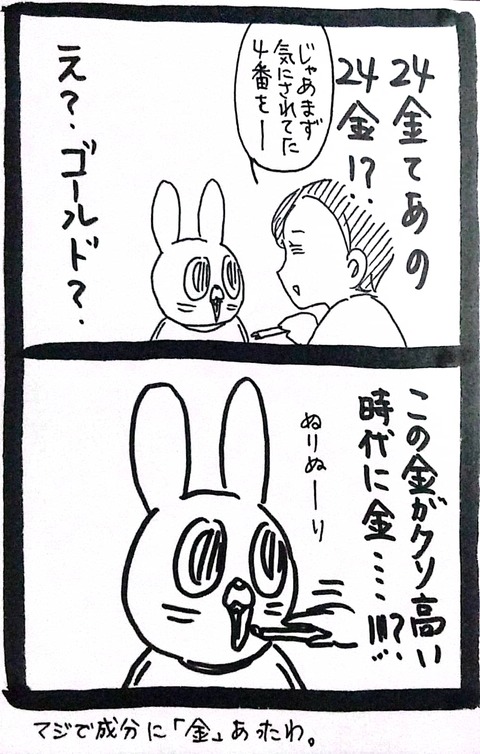 24金てあの
24金!?
じゃあまず
気にされてた
4番をー
え?.ゴールド?.
この金がクソ高い
時代に金....!!!?.
ぬりぬーり
マジで成分に「金」あったわ。